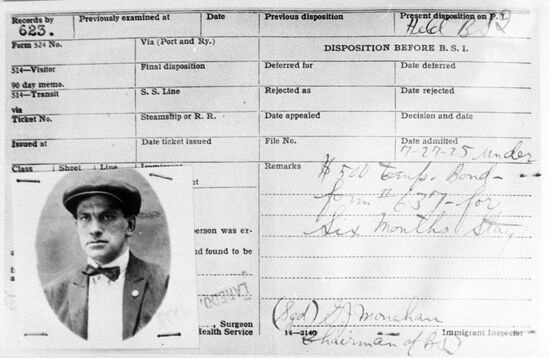 Records by Previously examined at Date Previous disposition Present disposition on P. I.
623. Held B S I
Form 524 No. Via (Port and Ry.) DISPOSITION BEFORE B. S. I.
514—Visitor Final disposition Deferred for Date deferred
90 day memo.
514—Transit S. S. Line Rejected as Date rejected
via
Ticket No. Steamship or R. R. Date appealed Decision and date
Issued at Date ticket issued File No. Date admitted
7-27-25 under
Class Sheet Line Remarks
$500 Temp. Bond-
form # 637- for
Six Months Stay
person was ex-
nd found to be
LAREDO,
(Sgd) Monahan
, Surgeon 14—2140 Immigrant Inspector
ealth Service Chairman of B S I